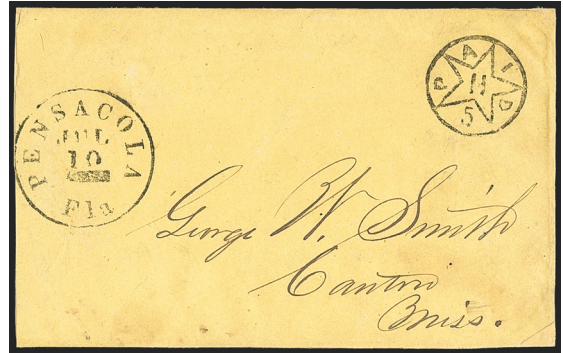 PENSACOLA
JUL
10
Fla
PAID
11
5
George W. Smith
Canton
Miss.